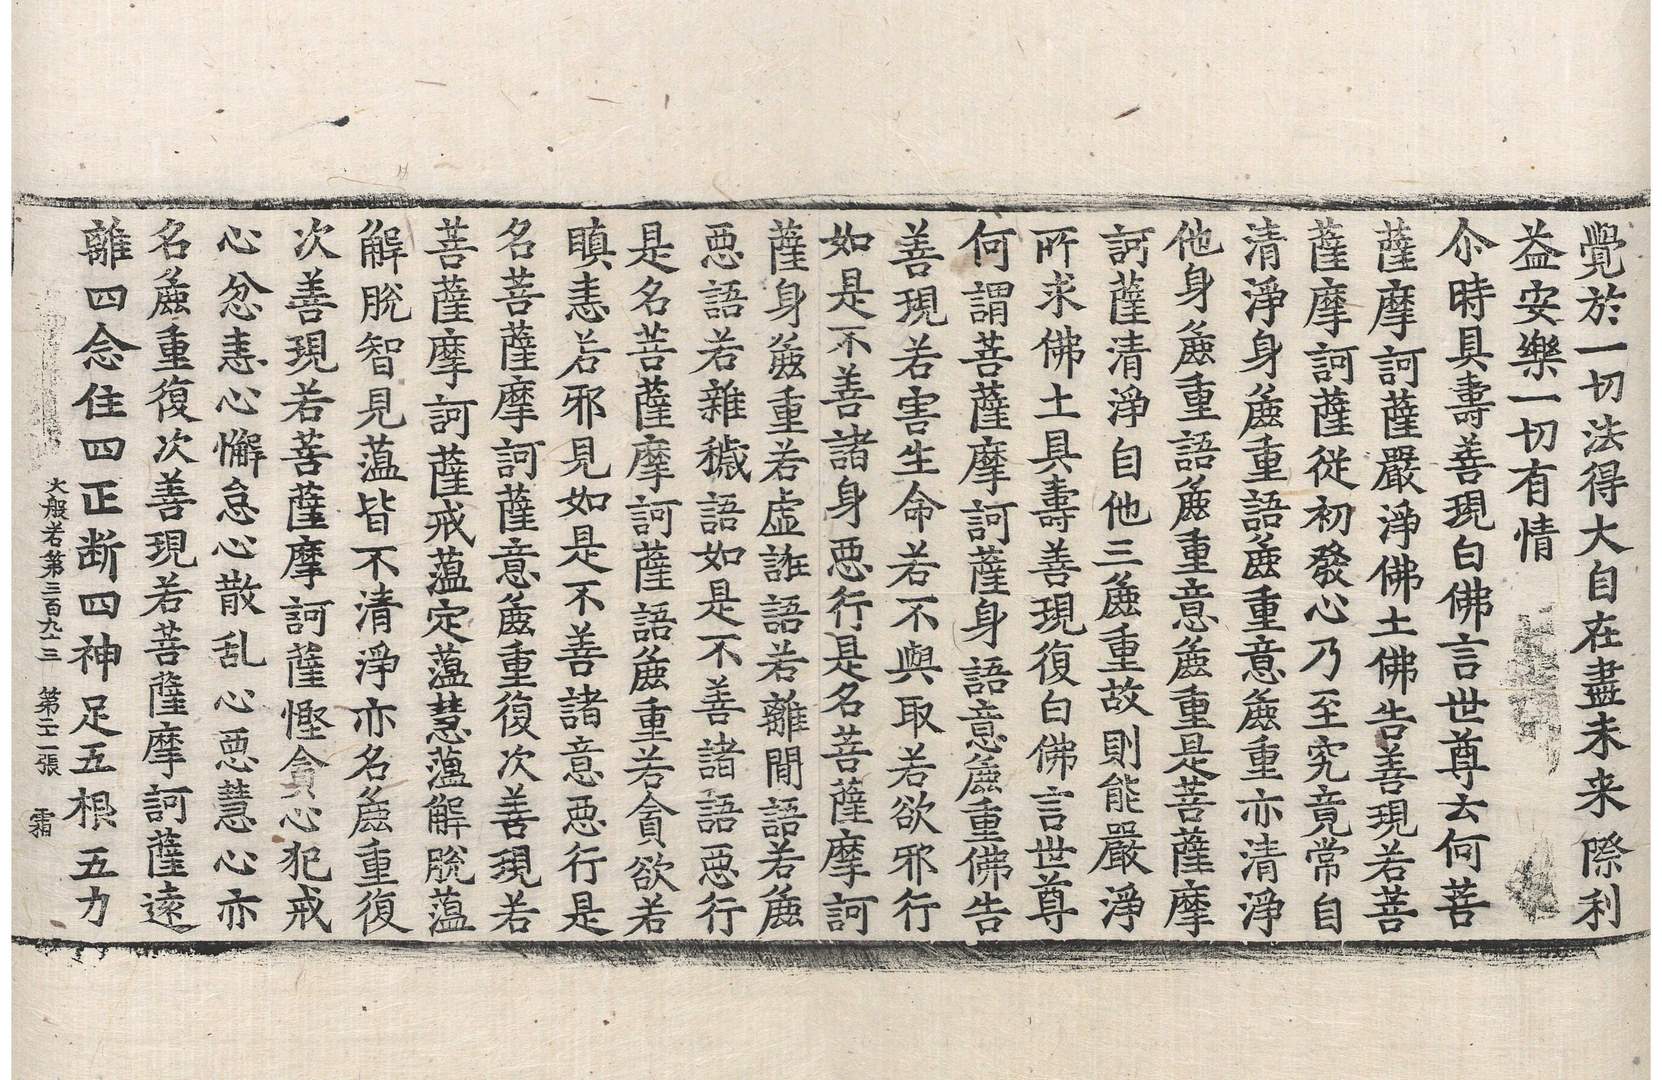 覺於一切法得大自在盡未来際利
益安樂一切有情
尒時具壽善現白佛言世尊云何菩
薩摩訶薩嚴淨佛土佛告善現若菩
薩摩訶薩從初發心乃至究竟常自
清淨身麁重語麁重意麁重亦清淨
他身麁重語麁重意麁重是菩薩摩
訶薩清淨自他三麁重故則能嚴淨
所求佛土具壽善現復白佛言世尊
何謂菩薩摩訶薩身語意麁重佛告
善現若害生命若不與取若欲邪行
如是不善諸身惡行是名菩薩摩訶
薩身麁重若虛誑語若離間語若麁
惡語若雜穢語如是不善諸語惡行
是名菩薩摩訶薩語麁重若貪欲若
瞋恚若邪見如是不善諸意惡行是
名菩薩摩訶薩意麁重復次善現若
菩薩摩訶薩戒蕰定蕰慧蕰解脫蕰
解脫智見蕰皆不清淨亦名麁重復
次善現若菩薩摩訶薩慳貪心犯戒
心忿恚心懈怠心散乱心惡慧心亦
名麁重復次善現若菩薩摩訶薩遠
離四念住四正断四神足五根五力
大般若第三百九十三 第二十一張 霜